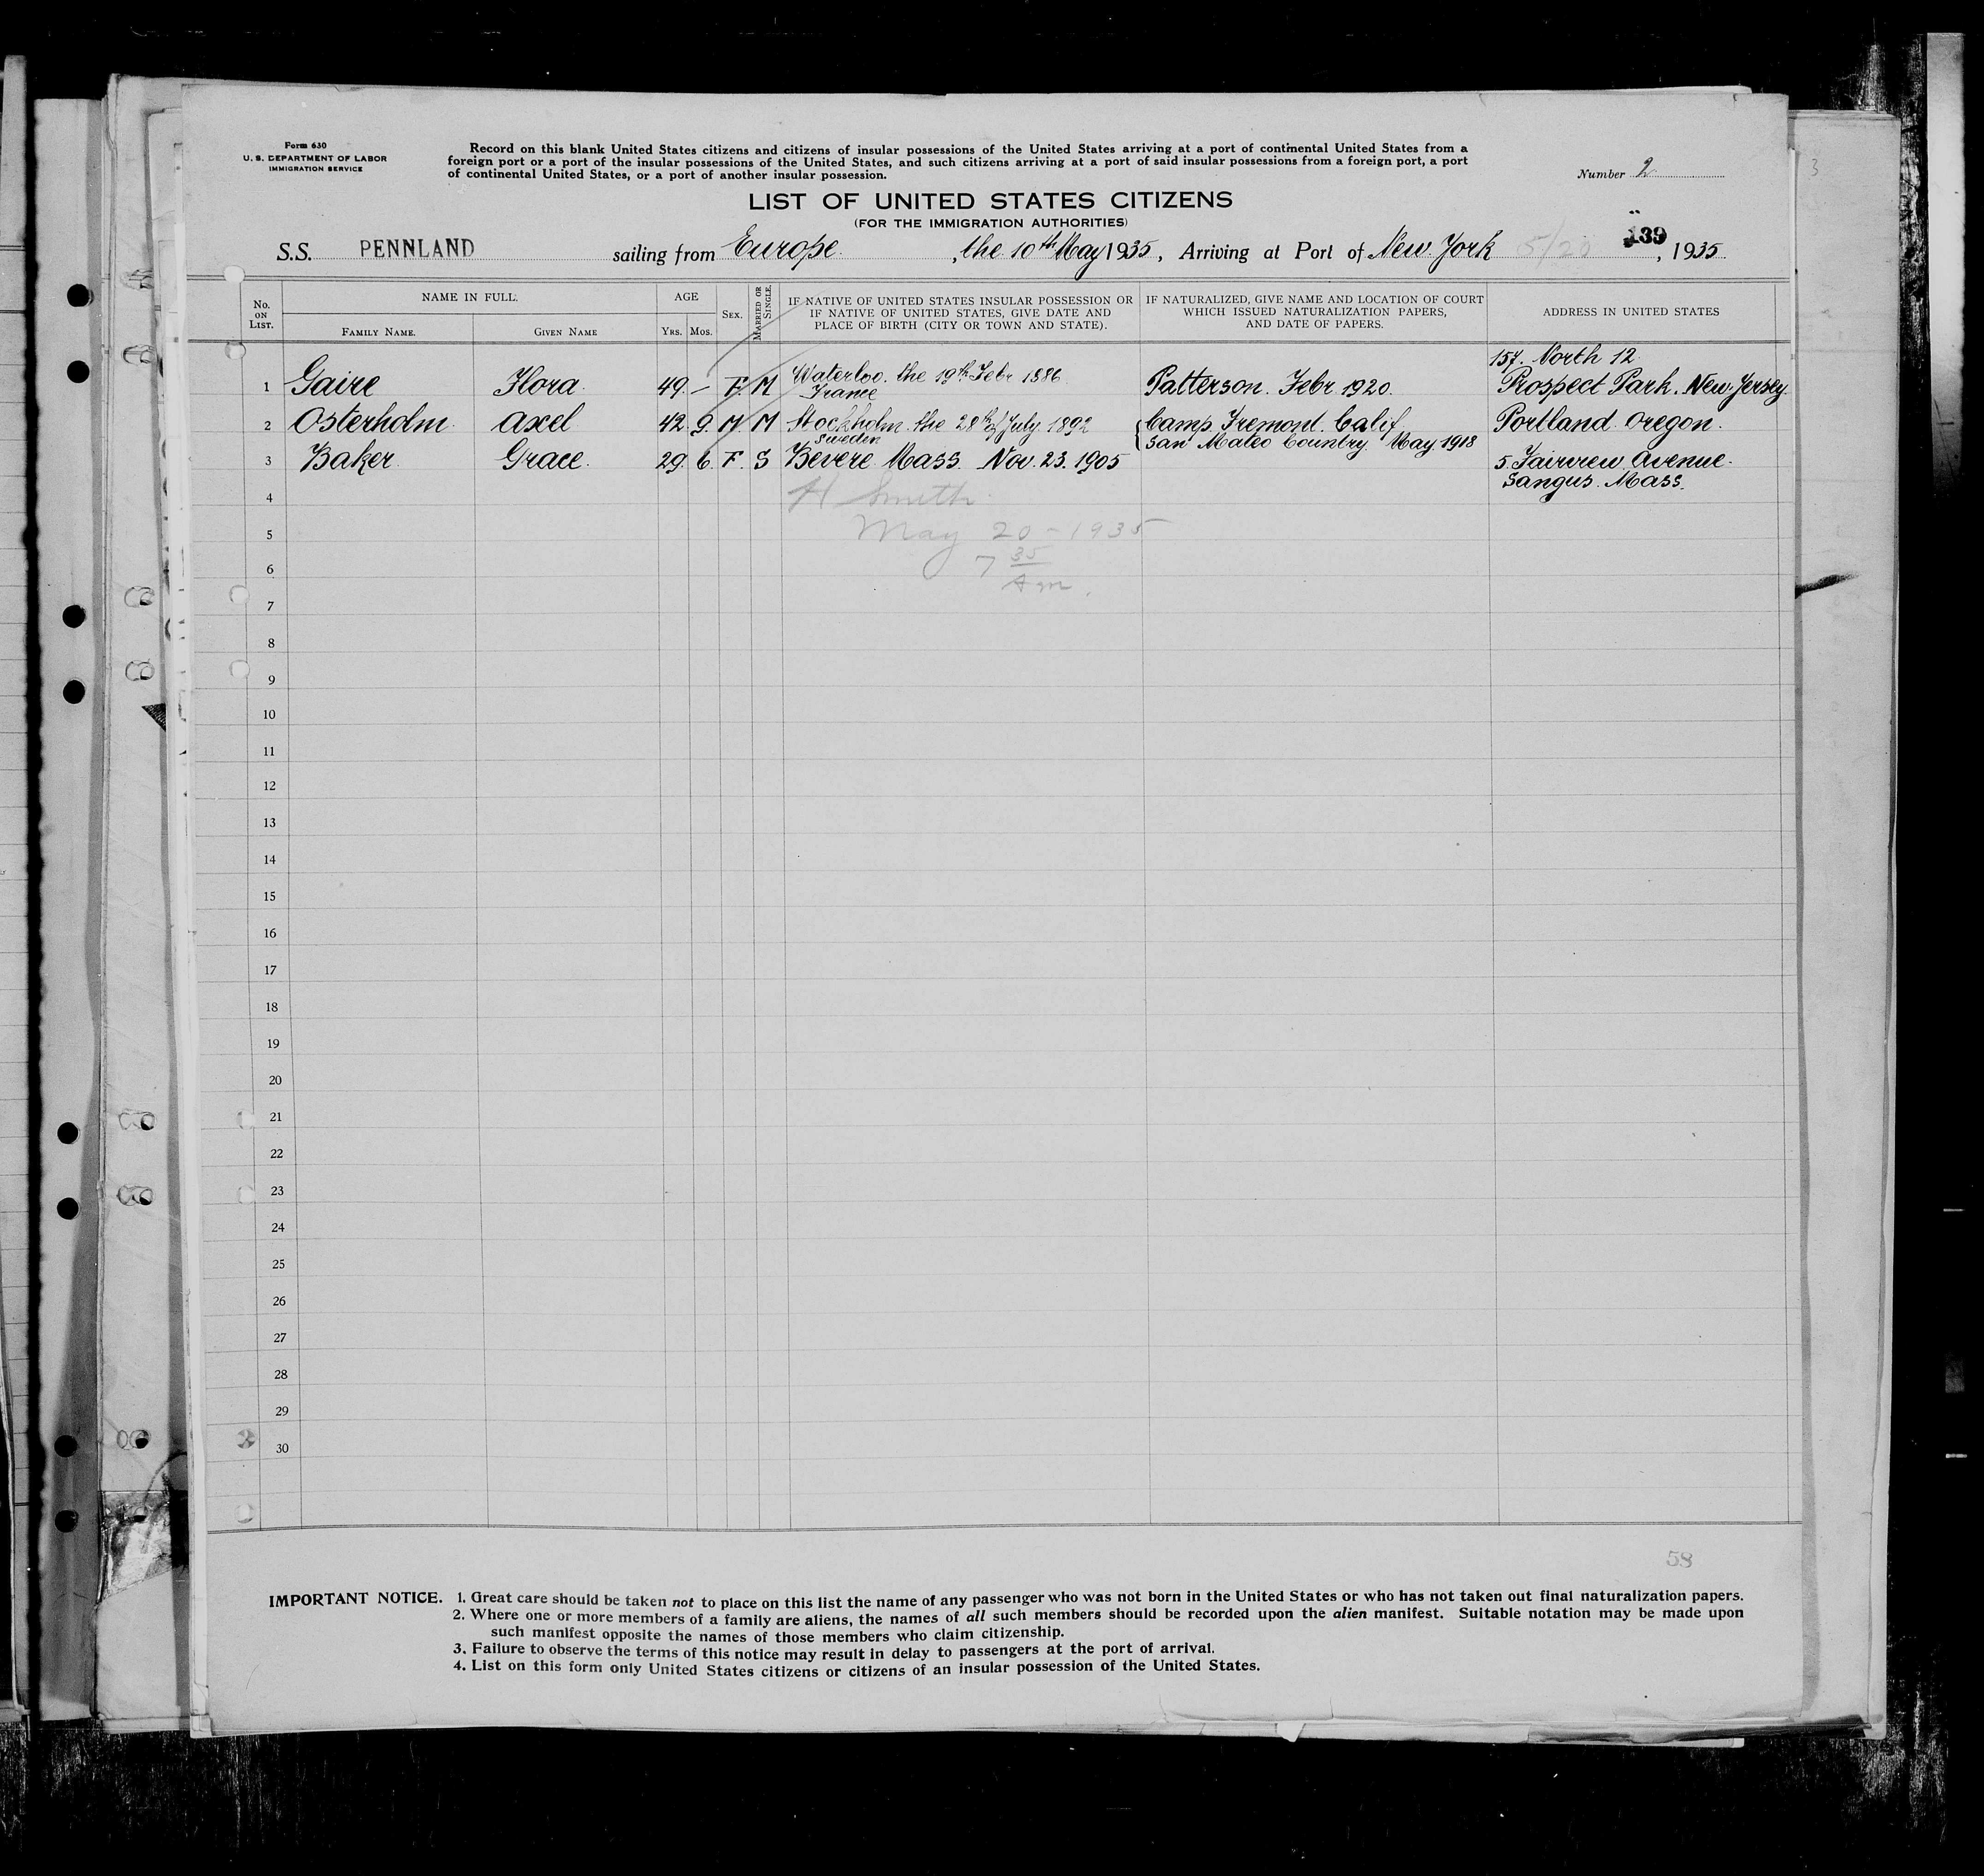 Form 630
U. S. DEPARTMENT OF LABOR
IMMIGRATION SERVICE
Record on this blank United States citizens and citizens of insular possessions of the United States arriving at a port of continental United States from a
foreign port or a port of the insular possessions of the United States, and such citizens arriving at a port of said insular possessions from a foreign port, a port
of continental United States, or a port of another insular possession.
Number 2
3
LIST OF UNITED STATES CITIZENS
(FOR THE IMMIGRATION AUTHORITIES)
S.S. PENNLAND sailing from Europe, the 10th May 1935, Arriving at Port of New York 5/20 139, 1935
No. ON LIST. NAME IN FULL. AGE SEX. MARRIED OR SINGLE. IF NATIVE OF UNITED STATES INSULAR POSSESSION OR IF NATIVE OF UNITED STATES, GIVE DATE AND PLACE OF BIRTH (CITY OR TOWN AND STATE). IF NATURALIZED, GIVE NAME AND LOCATION OF COURT WHICH ISSUED NATURALIZATION PAPERS, AND DATE OF PAPERS. ADDRESS IN UNITED STATES
FAMILY NAME. GIVEN NAME YRS. MOS.
157. North 12
1 Gaire Flora. 49. - F. M Waterloo. the 19th Febr 1886 Patterson. Febr 1920. Prospect Park. New Jersey
France
2 Osterholm. Axel 42. 9. M. M Stockholm. the 28th of July 1892 Camp. Fremont. Calif. Portland. Oregon.
Sweden San Mateo Country. May. 1918
3 Baker. Grace. 29. 6. F. S Bevere. Mass. Nov. 23. 1905 5. Fairview Avenue.
Sangus. Mass.
4 H Smith
5 May 20-1935
6 7 35
Am.
7
8
9
10
11
12
13
14
15
16
17
18
19
20
21
22
23
24
25
26
27
28
29
30
58
IMPORTANT NOTICE. 1. Great care should be taken not to place on this list the name of any passenger who was not born in the United States or who has not taken out final naturalization papers.
2. Where one or more members of a family are aliens, the names of all such members should be recorded upon the alien manifest. Suitable notation may be made upon
such manifest opposite the names of those members who claim citizenship.
3. Failure to observe the terms of this notice may result in delay to passengers at the port of arrival.
4. List on this form only United States citizens or citizens of an insular possession of the United States.